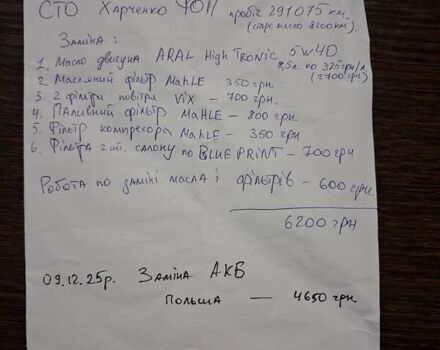 СТО Харченко ФОП пробіг 291075 км.
(старе масло 8200 км).
Заміна :
1. Масло двигуна ARAL High Tronic 5w40
8,5л. по 325грн/л
(2700 грн)
2. Масляний фільтр MAHLE 350 грн.
3. 2 фільтри повітря VIX – 700 грн.
4. Паливний фільтр MAHLE – 800 грн
5. Фільтр компресора MAHLE – 350 грн
6. Фільтра 2 шт. салону по BLUE PRINT – 700 грн
Робота по заміні масла і фільтрів – 600 грн
6200 грн
09.12.25р. Заміна АКБ
Польша — 4650 грн